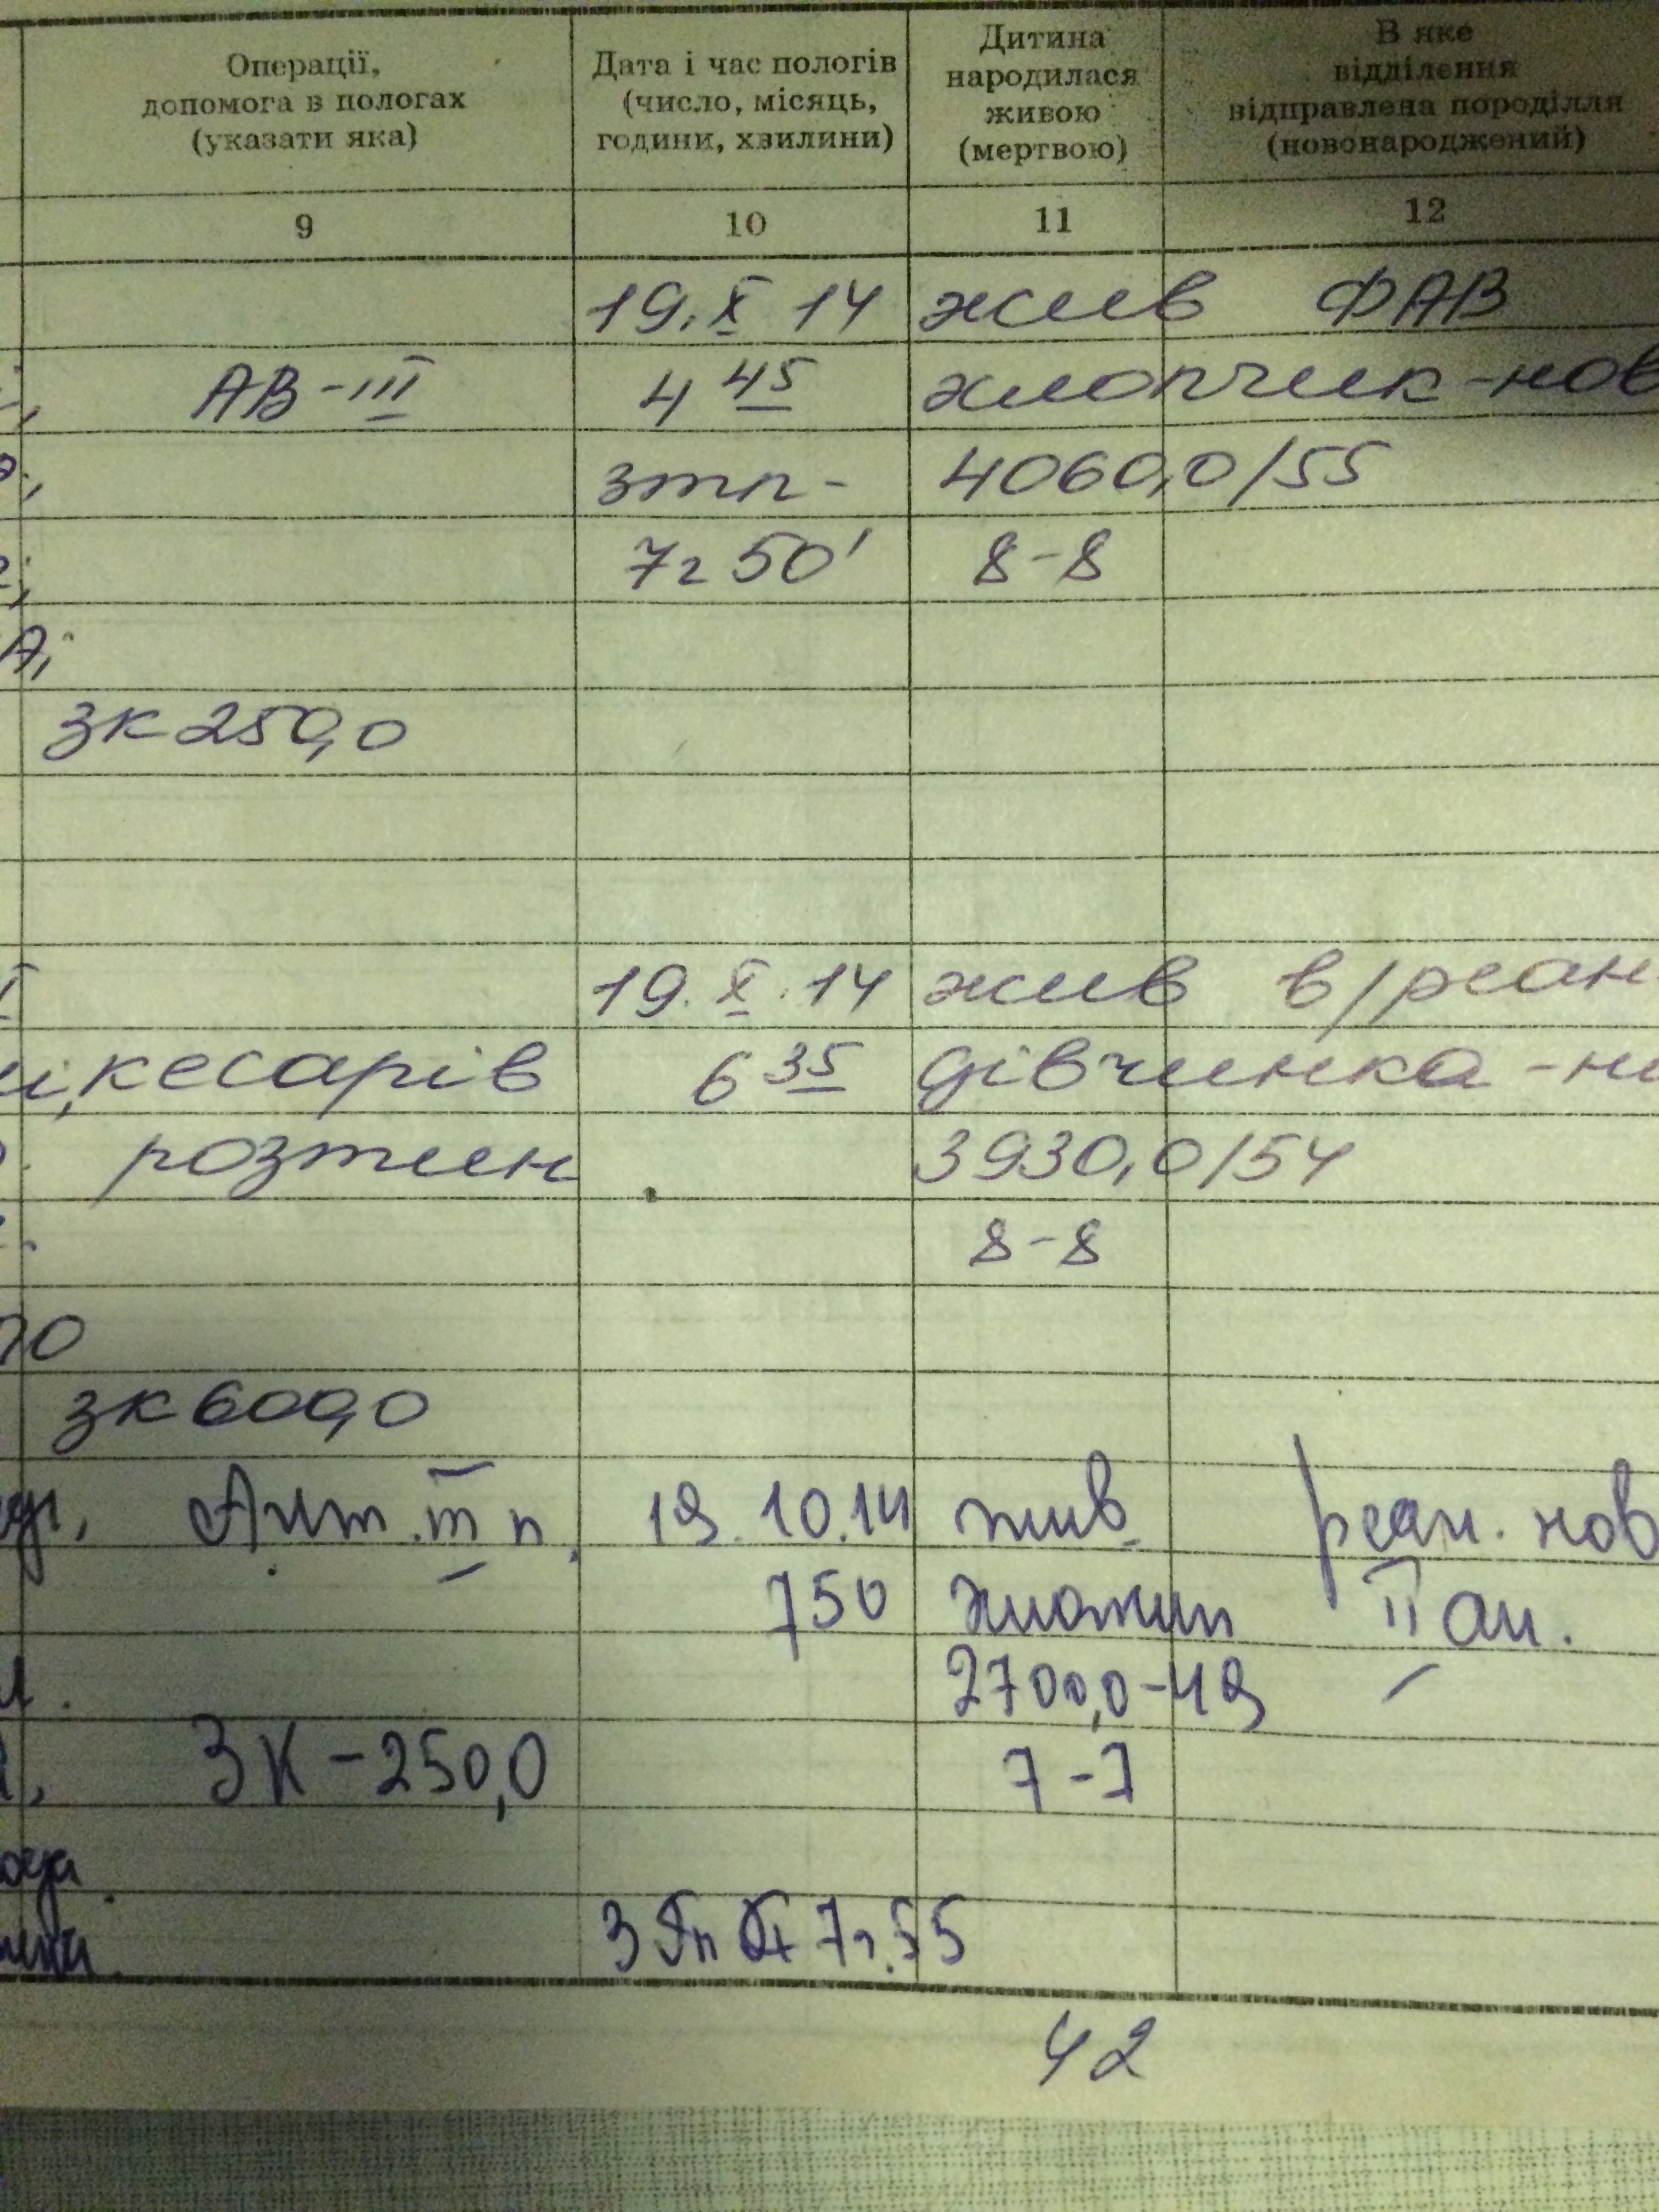 Операції,
допомога в пологах
(указати яка)
Дата і час пологів
(число, місяць,
години, хвилини)
Дитина
народилася
живою
(мертвою)
В яке
відділення
відправлена породілля
(новонароджений)
9 10 11 12
19.X 14 жив ФАВ
АВ-III 4 45 хлопчик-нов
зтп- 4060,0/55
7г 50' 8-8
А,
зк 250,0
19.X.14 жив в/реан
кесарів 6 35 дівчинка-
розтин 3930,0/54
8-8
зк 600,0
III п. 19.10.14 жив реан. нов
750 II
2700,0-49
ЗК-250,0 7-7
7г.55
42